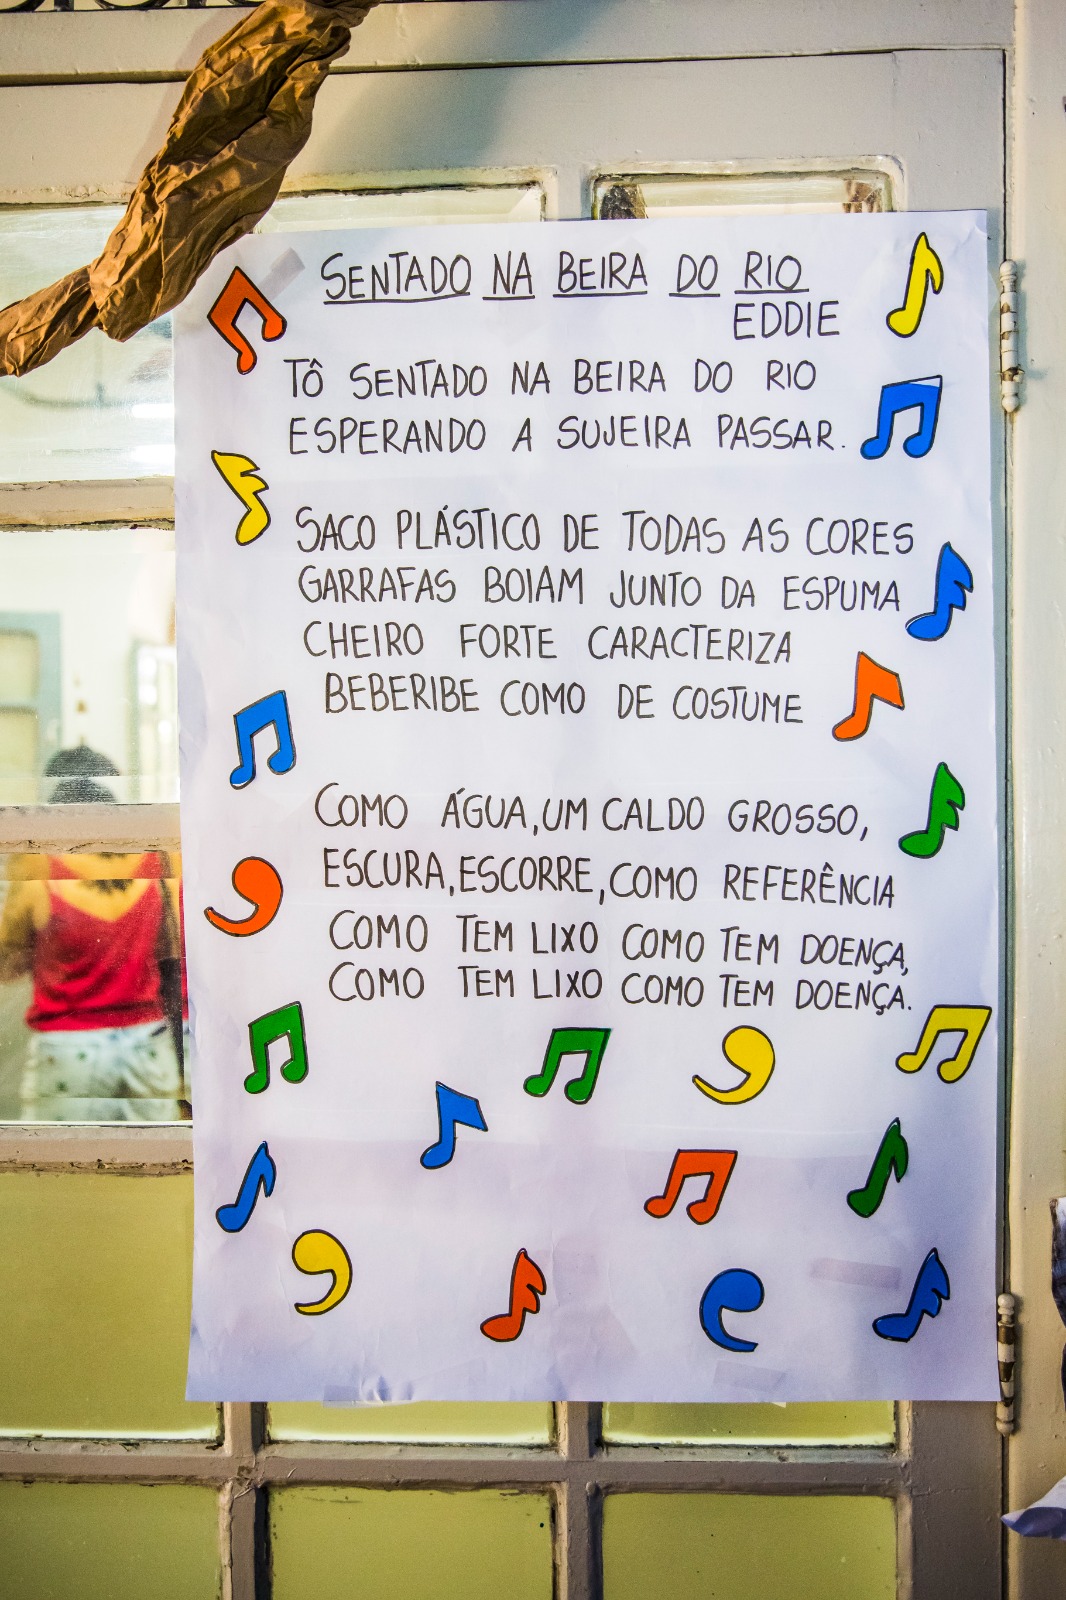 SENTADO NA BEIRA DO RIO
EDDIE
TÔ SENTADO NA BEIRA DO RIO
ESPERANDO A SUJEIRA PASSAR.
SACO PLÁSTICO DE TODAS AS CORES
GARRAFAS BOIAM JUNTO DA ESPUMA
CHEIRO FORTE CARACTERIZA
BEBERIBE COMO DE COSTUME
COMO ÁGUA, UM CALDO GROSSO,
ESCURA, ESCORRE, COMO REFERÊNCIA
COMO TEM LIXO COMO TEM DOENÇA,
COMO TEM LIXO COMO TEM DOENÇA.